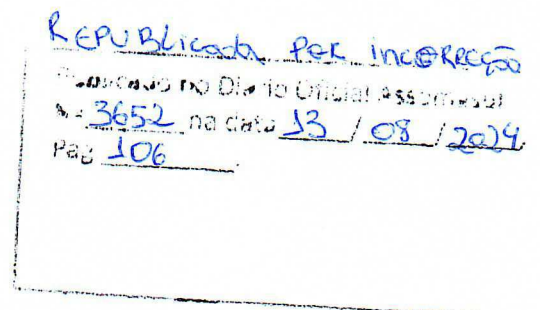 Republicada por incorreção
Publicado no Diario Oficial Assomasul
Nº 3652 na data 13 / 08 / 2024
Pag 106